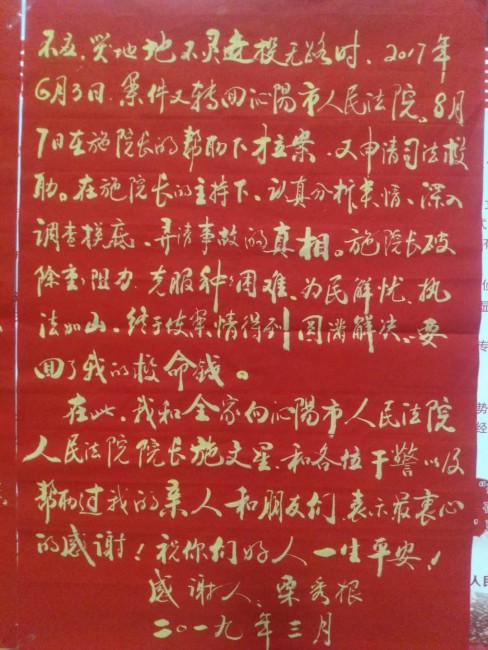 不应,哭地地不灵走投无路时、2017年
6月3日.案件又转回沁阳市人民法院。8月
7日在施院长的帮助下才立案、又申请司法救
助。在施院长的主持下、认真分析案情、深入
调查摸底、弄清事故的真相。施院长破
除重重阻力.克服种种困难、为民解忧、执
法如山、终于使案情得到圆满解决、要
回了我的救命钱。
在此、我和全家向沁阳市人民法院
人民法院院长施文星、和各位干警以及
帮助过我的亲人和朋友们、表示最衷心
的感谢!祝你们好人一生平安!
感谢人、栗秀根
二〇一九年三月